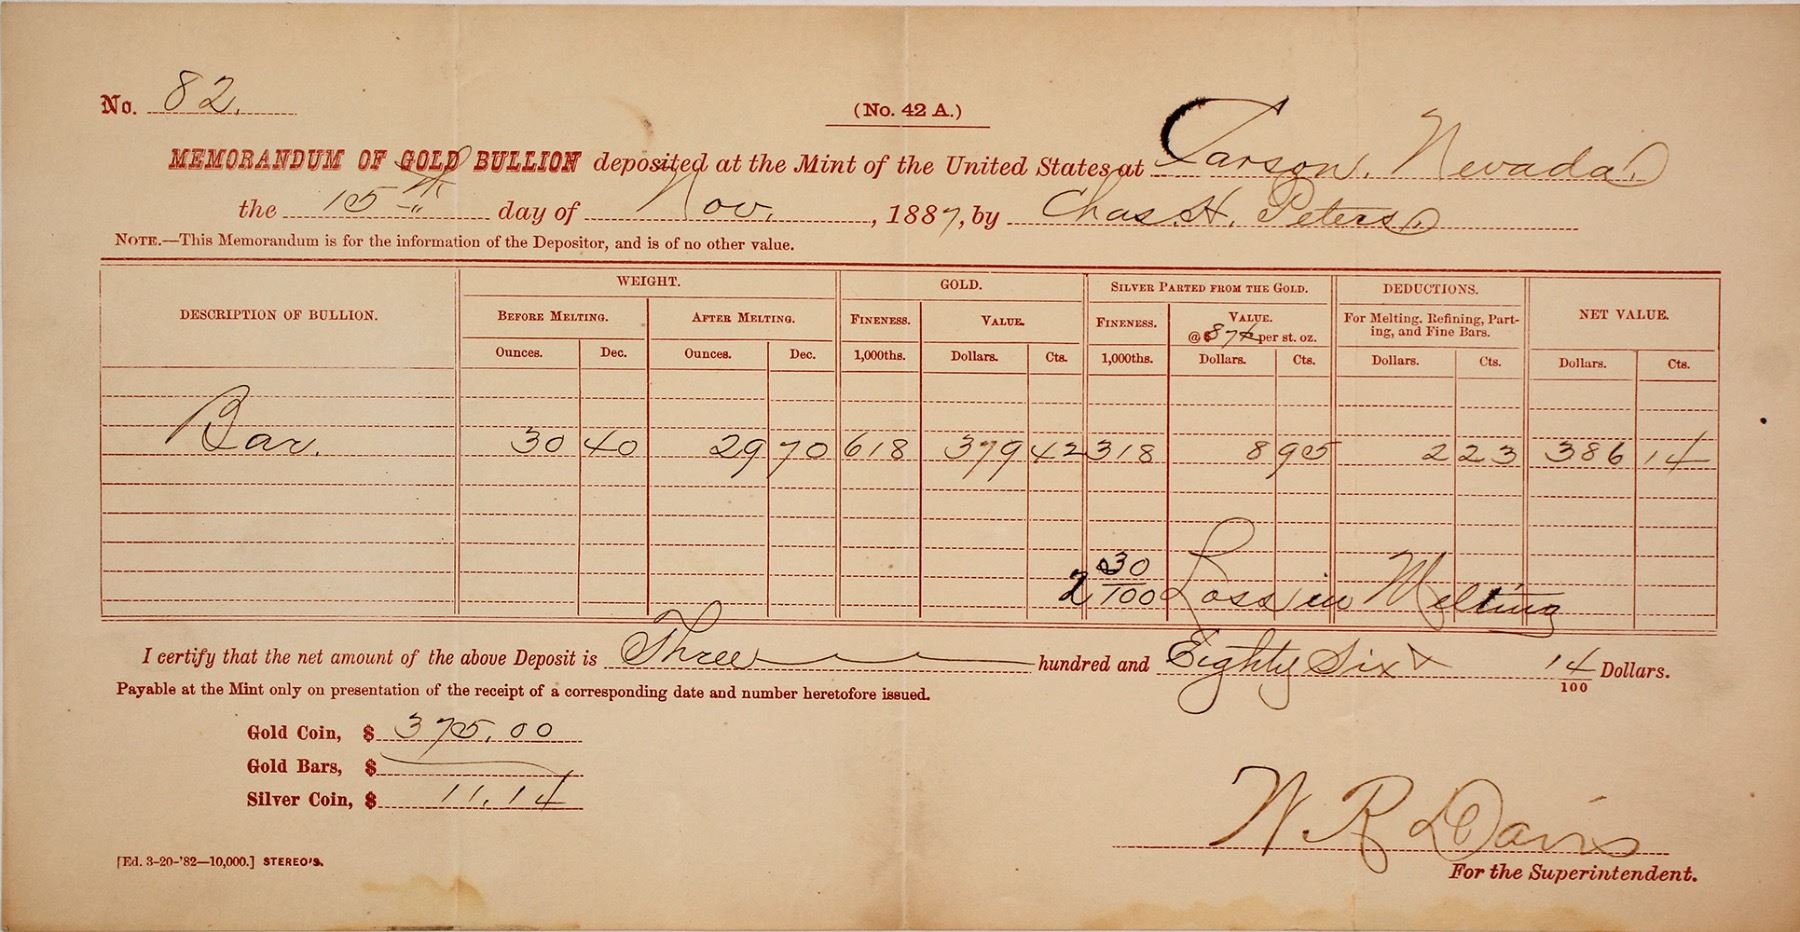 No. 82.
(No. 42 A.)
MEMORANDUM OF GOLD BULLION deposited at the Mint of the United States at Carson, Nevada,
the 15th day of Nov. , 1887, by Chas. H. Peters,
NOTE.—This Memorandum is for the information of the Depositor, and is of no other value.
WEIGHT. GOLD. SILVER PARTED FROM THE GOLD. DEDUCTIONS.
DESCRIPTION OF BULLION. BEFORE MELTING. AFTER MELTING. FINENESS. VALUE. FINENESS. VALUE. For Melting, Refining, Part- NET VALUE.
@ $ per st. oz. ing, and Fine Bars.
Ounces. Dec. Ounces. Dec. 1,000ths. Dollars. Cts. 1,000ths. Dollars. Cts. Dollars. Cts. Dollars. Cts.
Bar. 30 40 29 70 618 379 42 318 8 95 2 23 386 14
2 30/100 Loss in Melting
I certify that the net amount of the above Deposit is Three hundred and Eighty Six & 14/100 Dollars.
Payable at the Mint only on presentation of the receipt of a corresponding date and number heretofore issued.
Gold Coin, $ 375.00
Gold Bars, $
Silver Coin, $ 11.14
W. R. Davis
For the Superintendent.
[Ed. 3-20-'82—10,000.] STEREO'S.